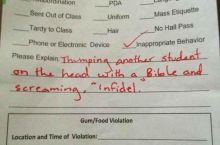 Insubordination PDA
Sent Out of Class Uniform Mass Etiquette
Tardy to Class Hair No Hall Pass
Phone or Electronic Device Inappropriate Behavior
Please Explain: Thumping another student
on the head with a Bible and
screaming, "Infidel."
Gum/Food Violation
Location and Time of Violation: